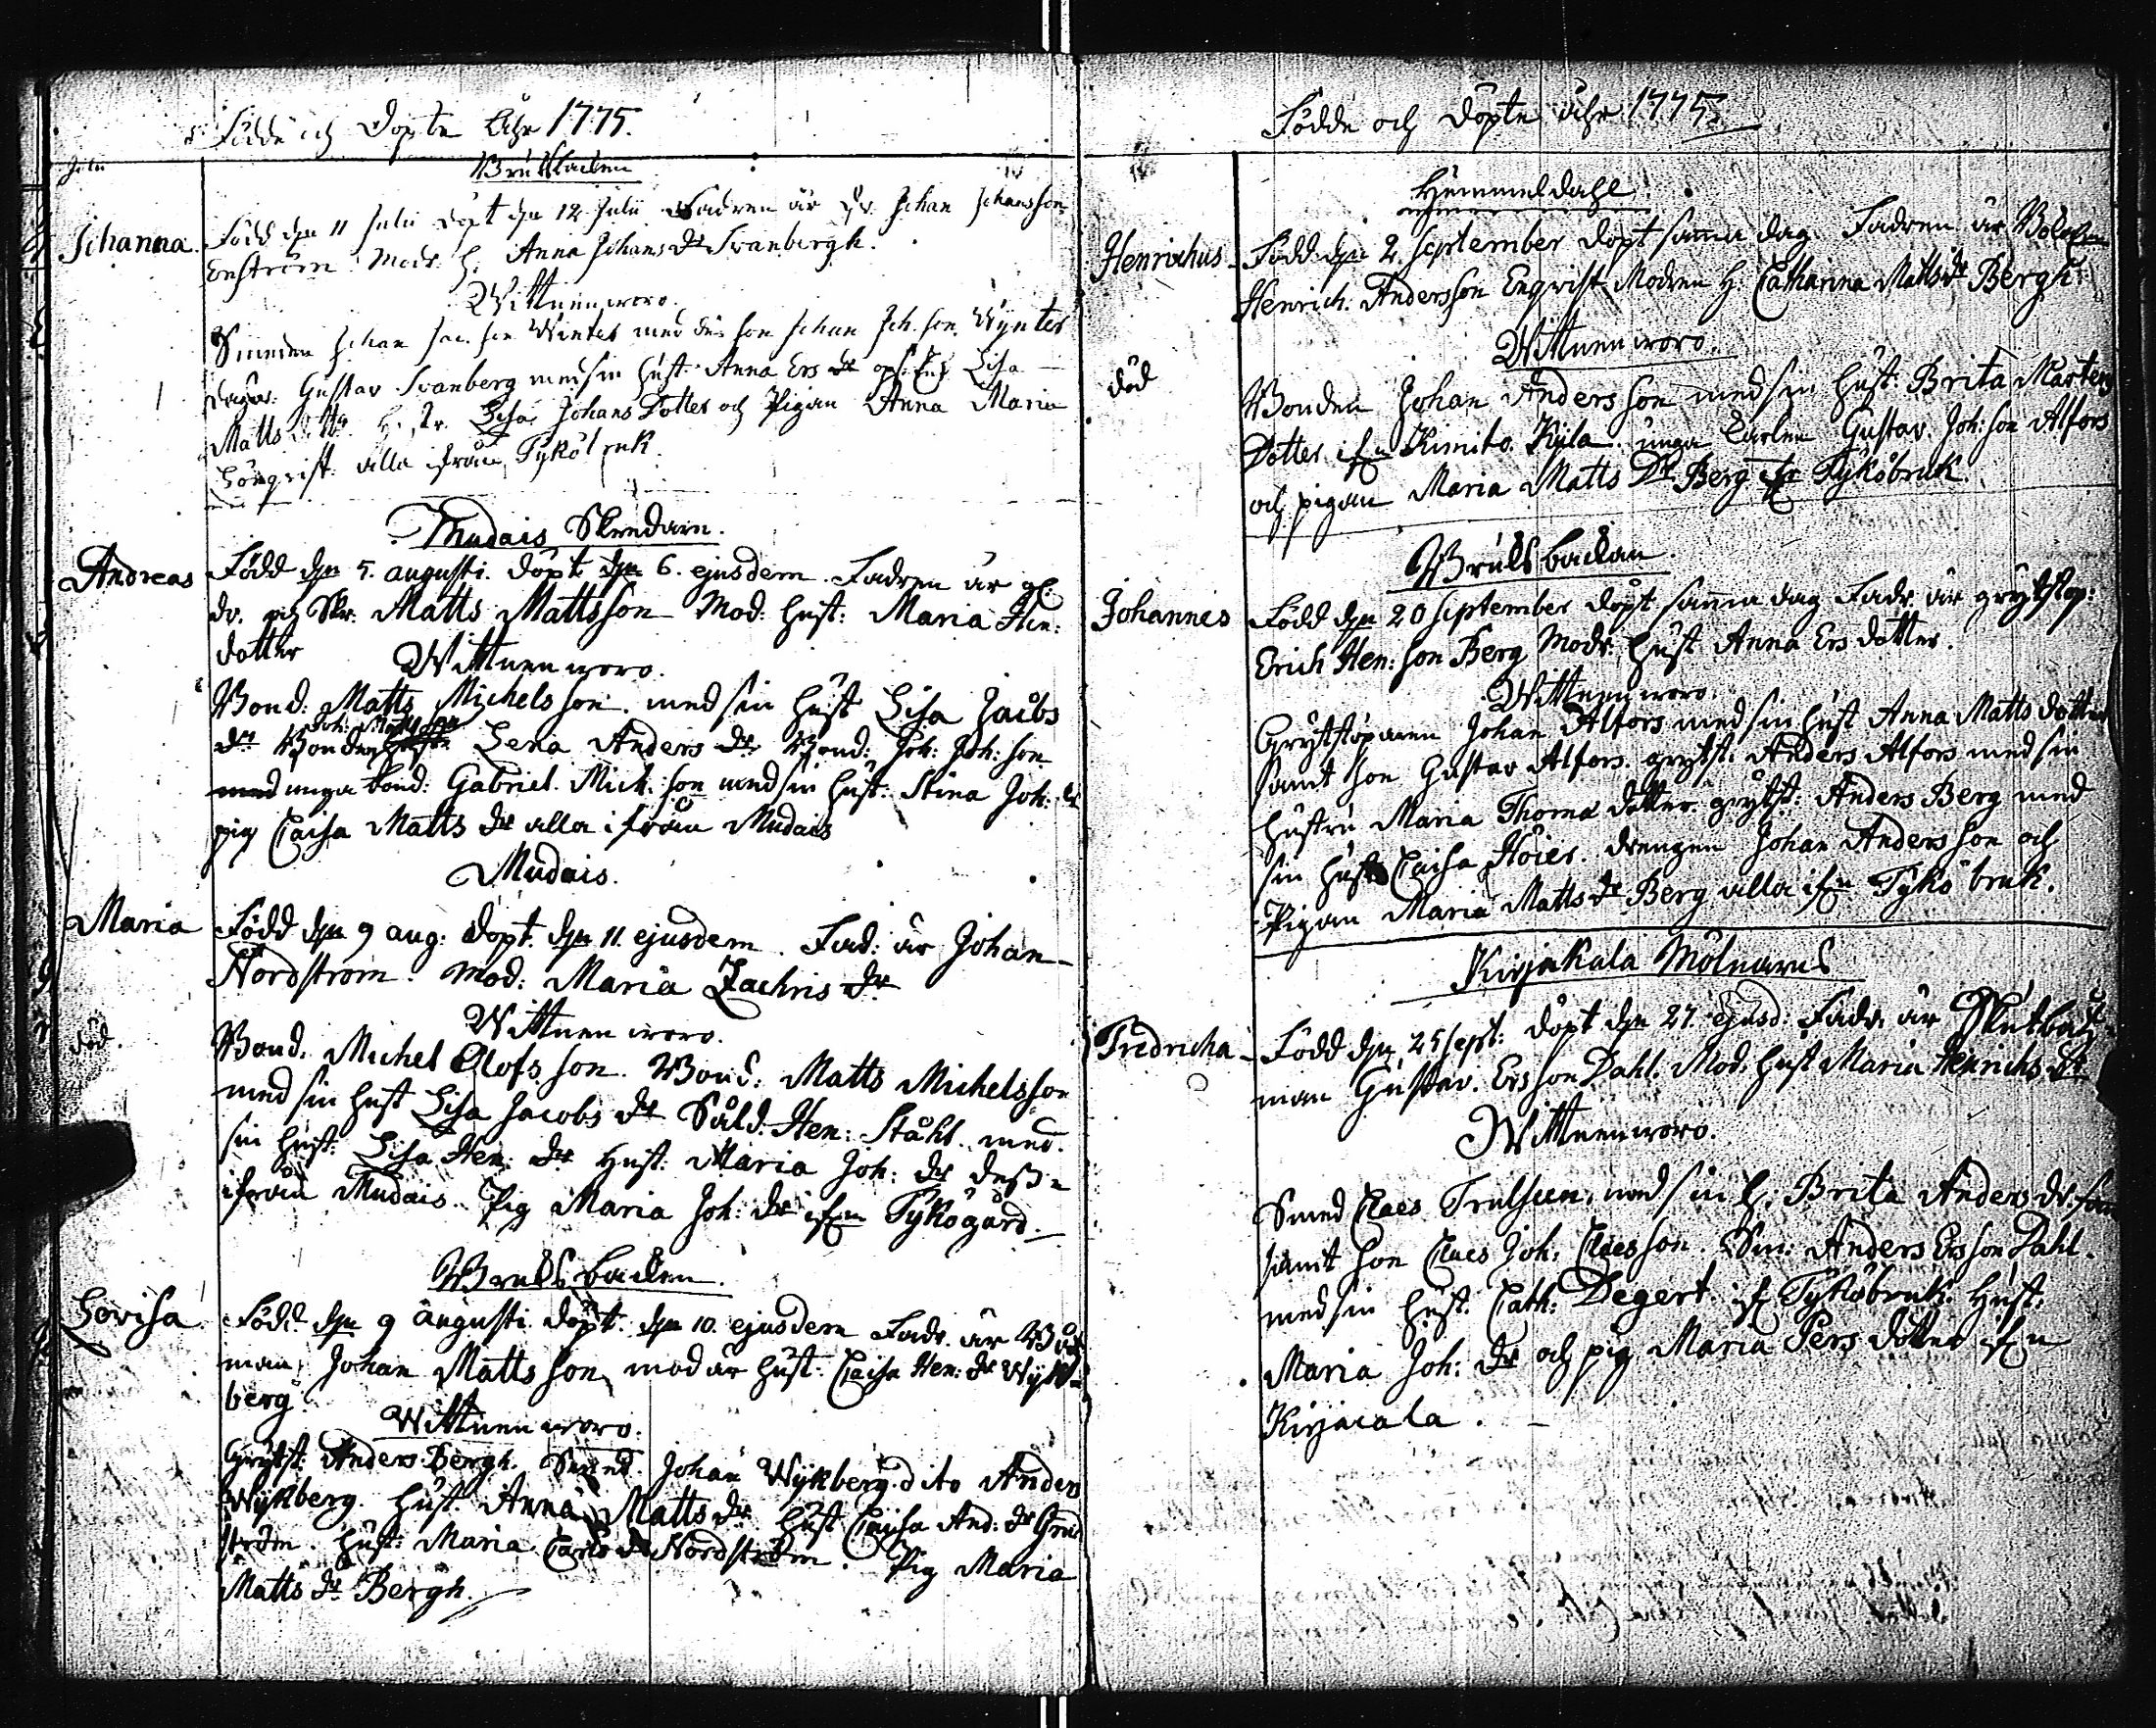 Födde och Döpte Åhr 1775.
Julii
Bruksbacken
Johanna. Född den 11 Julii döpt den 12 Julii Fadren är Johan Johansson
Enström Modr. H. Anna Johans dr Svanbergh.
Wittnen woro.
Smeden Johan Jac. son Winter med des son Johan Joh. son. Wynter
Gustav Svanberg med sin hust. Anna Ers dr Lisa
Matts Lisa Johans Dotter och Pigan Anna Maria
alla ifrån Tykö bruk.
Mudais Skredarn.
Andreas Född den 5. augusti. döpt den 6. ejusdem. Fadren är
och Skr. Matts Mattsson Mod: hust: Maria Hen:
dotter
Wittnen woro.
Bond: Matts Michelsson. med sin hust Lisa Jacobs
dr Bonden Lena Anders dr Bond: Joh: Joh: son
med unga bond: Gabriel. Mick: son med sin hust: Stina Joh: dr
pig Caisa Matts dr alla ifrån Mudais
Mudais.
Maria Född den 9 aug: döpt. den 11. ejusdem. Fad: är Johan
Nordström. Mod: Maria Zachris dr
Wittnen woro.
död. Bond. Michel Olofsson. Bond: Matts Michelsson
med sin hust Lisa Jacobs dr Såld. Hen: Ståhl. med
sin hust: Lisa Hen: dr Hust: Maria Joh: dr desse
ifrån Mudais. Pig Maria Joh: dr ifrn Tykögård.
Bruksbacken.
Lovisa Född den 9 augusti. döpt. den 10. ejusdem Fadr. är
man, Johan Mattsson, mod är hust: Caisa Hen: dr Wyk-
berg.
Wittnen woro.
Grytst: Anders Bergh. Smed. Johan Wykberg. dito Anders
Wykberg. hust. Anna Matts dr hust Caisa And: dr
ström. hust: Maria Carls dr Nordström. Pig Maria
Matts dr Bergh.
Födde och Döpte åhr 1775.
Hemmeldahl
Henrichus Född den 2 September döpt samma dag. Fadren är
Henrich. Andersson Enqvist Modren H. Catharina Matts dr Bergh.
Wittnen woro.
död Bonden Johan Andersson med sin hust: Brita Mårtens
Dotter ifrn Kimito. Kyla. unga Carlen Gustav. Joh: son Alfors
och pigan Maria Matts Dr. Berg ifrn Tykö bruk.
Bruksbackan.
Johannes Född den 20 September döpt samma dag Fadr. är grytstöp:
Erich Hen: son Berg Modr. hust Anna Ers dotter.
Wittnen woro.
Grytstöparen Johan Alfors med sin hust Anna Matts dotter
samt son Gustav Alfors. grytst: Anders Alfors med sin
hustru Maria Thomæ dotter. grytst: Anders Berg med
sin hust Caisa Höier. drengen Johan Andersson och
Pigan Maria Matts dr Berg alla ifrn Tykö bruk.
Kirjakala Mölnarns
Fredricha Född den 25 Sept: döpt den 27. ejusd. Fadr. är Skutbåtz
man Gustav. Ersson Dahl. Mod. hust Maria Henrichs dr
Wittnen woro.
Smed Claes Trulsson, med sin h. Brita Anders dr.
samt son Claes Joh: Claesson. Sm: Anders Ersson Dahl.
med sin hust. Cath: Degert ifr Tykö bruk. Hust:
Maria Joh: dr och pig Maria Pers dotter ifrn
Kirjacala.